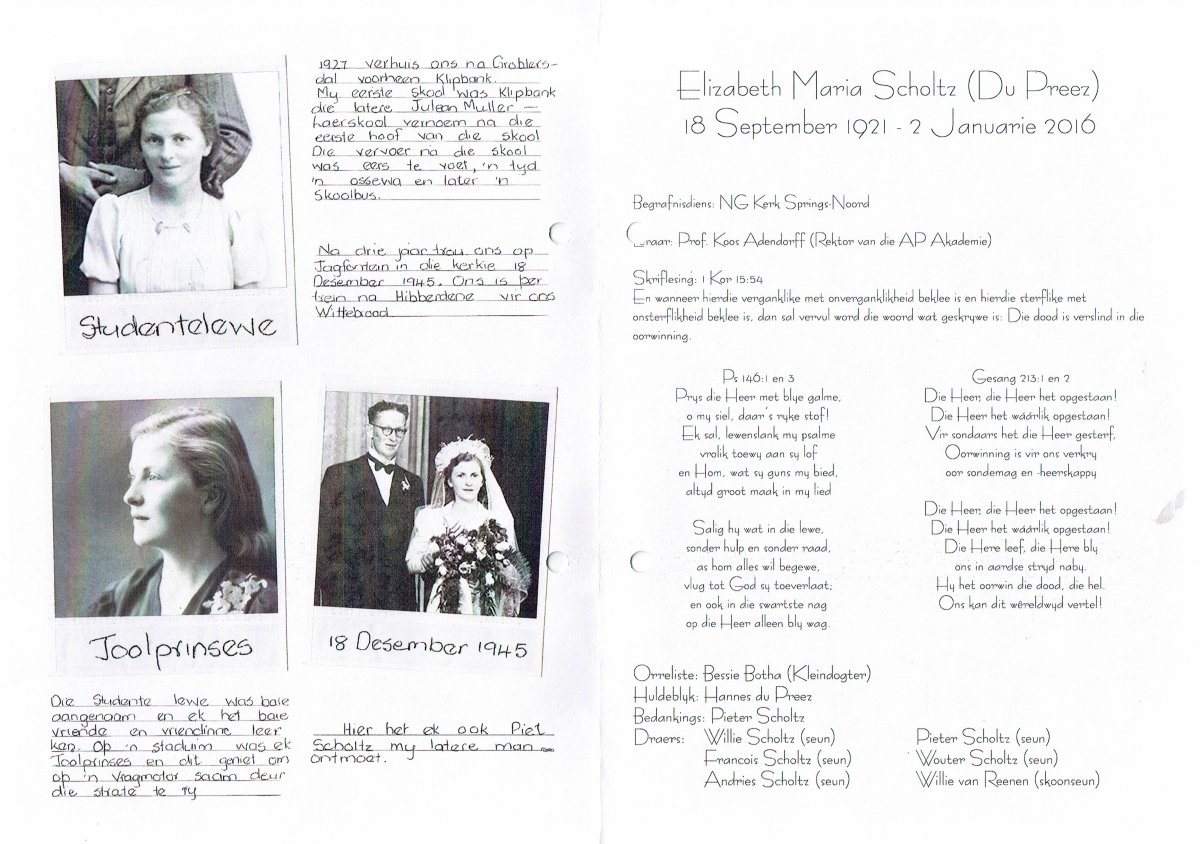 1927 verhuis ons na Groblers-
dal voorheen Klipbank.
My eerste skool was Klipbank
die latere Julean Muller -
Laerskool vernoem na die
eerste hoof van die skool
Die vervoer na die skool
was eers te voet, 'n tyd
'n ossewa en later 'n
Skoolbus.
Na drie jaar trou ons op
Jagfontein in die kerkie 18
Desember 1945. Ons is per
trein na Hibberdene vir ons
Wittebrood
Studentelewe
Joolprinses
18 Desember 1945
Die Studente lewe was baie
aangenaam en ek het baie
vriende en vriendinne leer
ken. Op 'n staduim was ek
Joolprinses en dit geniet om
op 'n vragmotor saam deur
die strate te ry
Hier het ek ook Piet
Scholtz my latere man
ontmoet.
Elizabeth Maria Scholtz (Du Preez)
18 September 1921 - 2 Januarie 2016
Begrafnisdiens: NG Kerk Springs-Noord
Prof. Koos Adendorff (Rektor van die AP Akademie)
Skriflesing: 1 Kor 15:54
En wanneer hierdie verganklike met onverganklikheid beklee is en hierdie sterflike met
onsterflikheid beklee is, dan sal vervul word die woord wat geskrywe is: Die dood is verslind in die
oorwinning.
Ps 146:1 en 3
Prys die Heer met blye galme,
o my siel, daar's ryke stof!
Ek sal, lewenslank my psalme
vrolik toewy aan sy lof
en Hom, wat sy guns my bied,
altyd groot maak in my lied
Salig hy wat in die lewe,
sonder hulp en sonder raad,
as hom alles wil begewe,
vlug tot God sy toeverlaat;
en ook in die swartste nag
op die Heer alleen bly wag.
Gesang 213:1 en 2
Die Heer, die Heer het opgestaan!
Die Heer het wáárlik opgestaan!
Vir sondaars het die Heer gesterf,
Oorwinning is vir ons verkry
oor sondemag en -heerskappy
Die Heer, die Heer het opgestaan!
Die Heer het wáárlik opgestaan!
Die Here leef, die Here bly
ons in aardse stryd naby.
Hy het oorwin die dood, die hel.
Ons kan dit wêreldwyd vertel!
Orreliste: Bessie Botha (Kleindogter)
Huldeblyk: Hannes du Preez
Bedankings: Pieter Scholtz
Draers: Willie Scholtz (seun) Pieter Scholtz (seun)
Francois Scholtz (seun) Wouter Scholtz (seun)
Andries Scholtz (seun) Willie van Reenen (skoonseun)